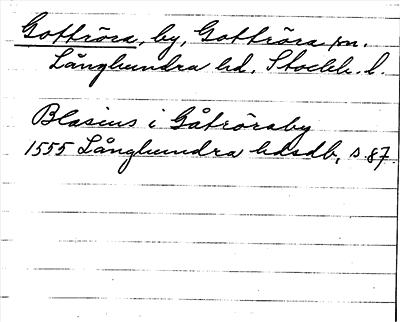 Gottröra, by, Gottröra sn.
Långhundra hd. Stockh. l.
Blasius i Gåtröraby
1555 Långhundra hdsdb, s. 87.